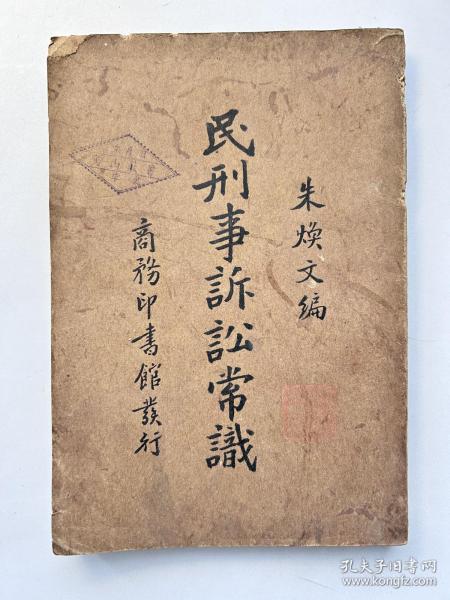 朱煥文編
民刑事訴訟常識
商務印書館發行
孔夫子旧书网
www.kongfz.com